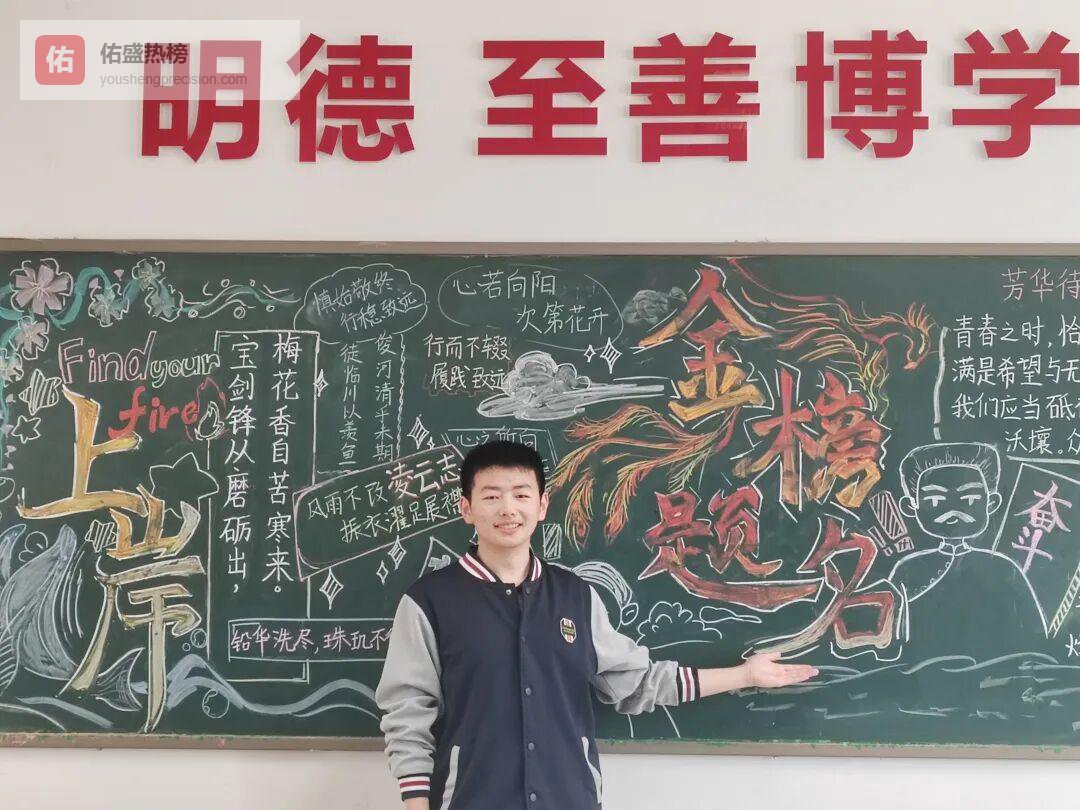 佑
佑盛热榜
youshengprecision.com
明德 至善 博学
Find your
fire
上岸
梅花香自苦寒来。
宝剑锋从磨砺出，
慎始敬终
行稳致远
俊河清乎未期
徒临川以羡鱼
心若向阳
次第花开
行而不辍
履践致远
心之所向
风雨不改凌云志
振衣濯足展襟
铅华洗尽，珠玑不
金榜
题名
芳华待
青春之时，恰
满是希望与无
我们应当砥
沃壤。众
奋斗